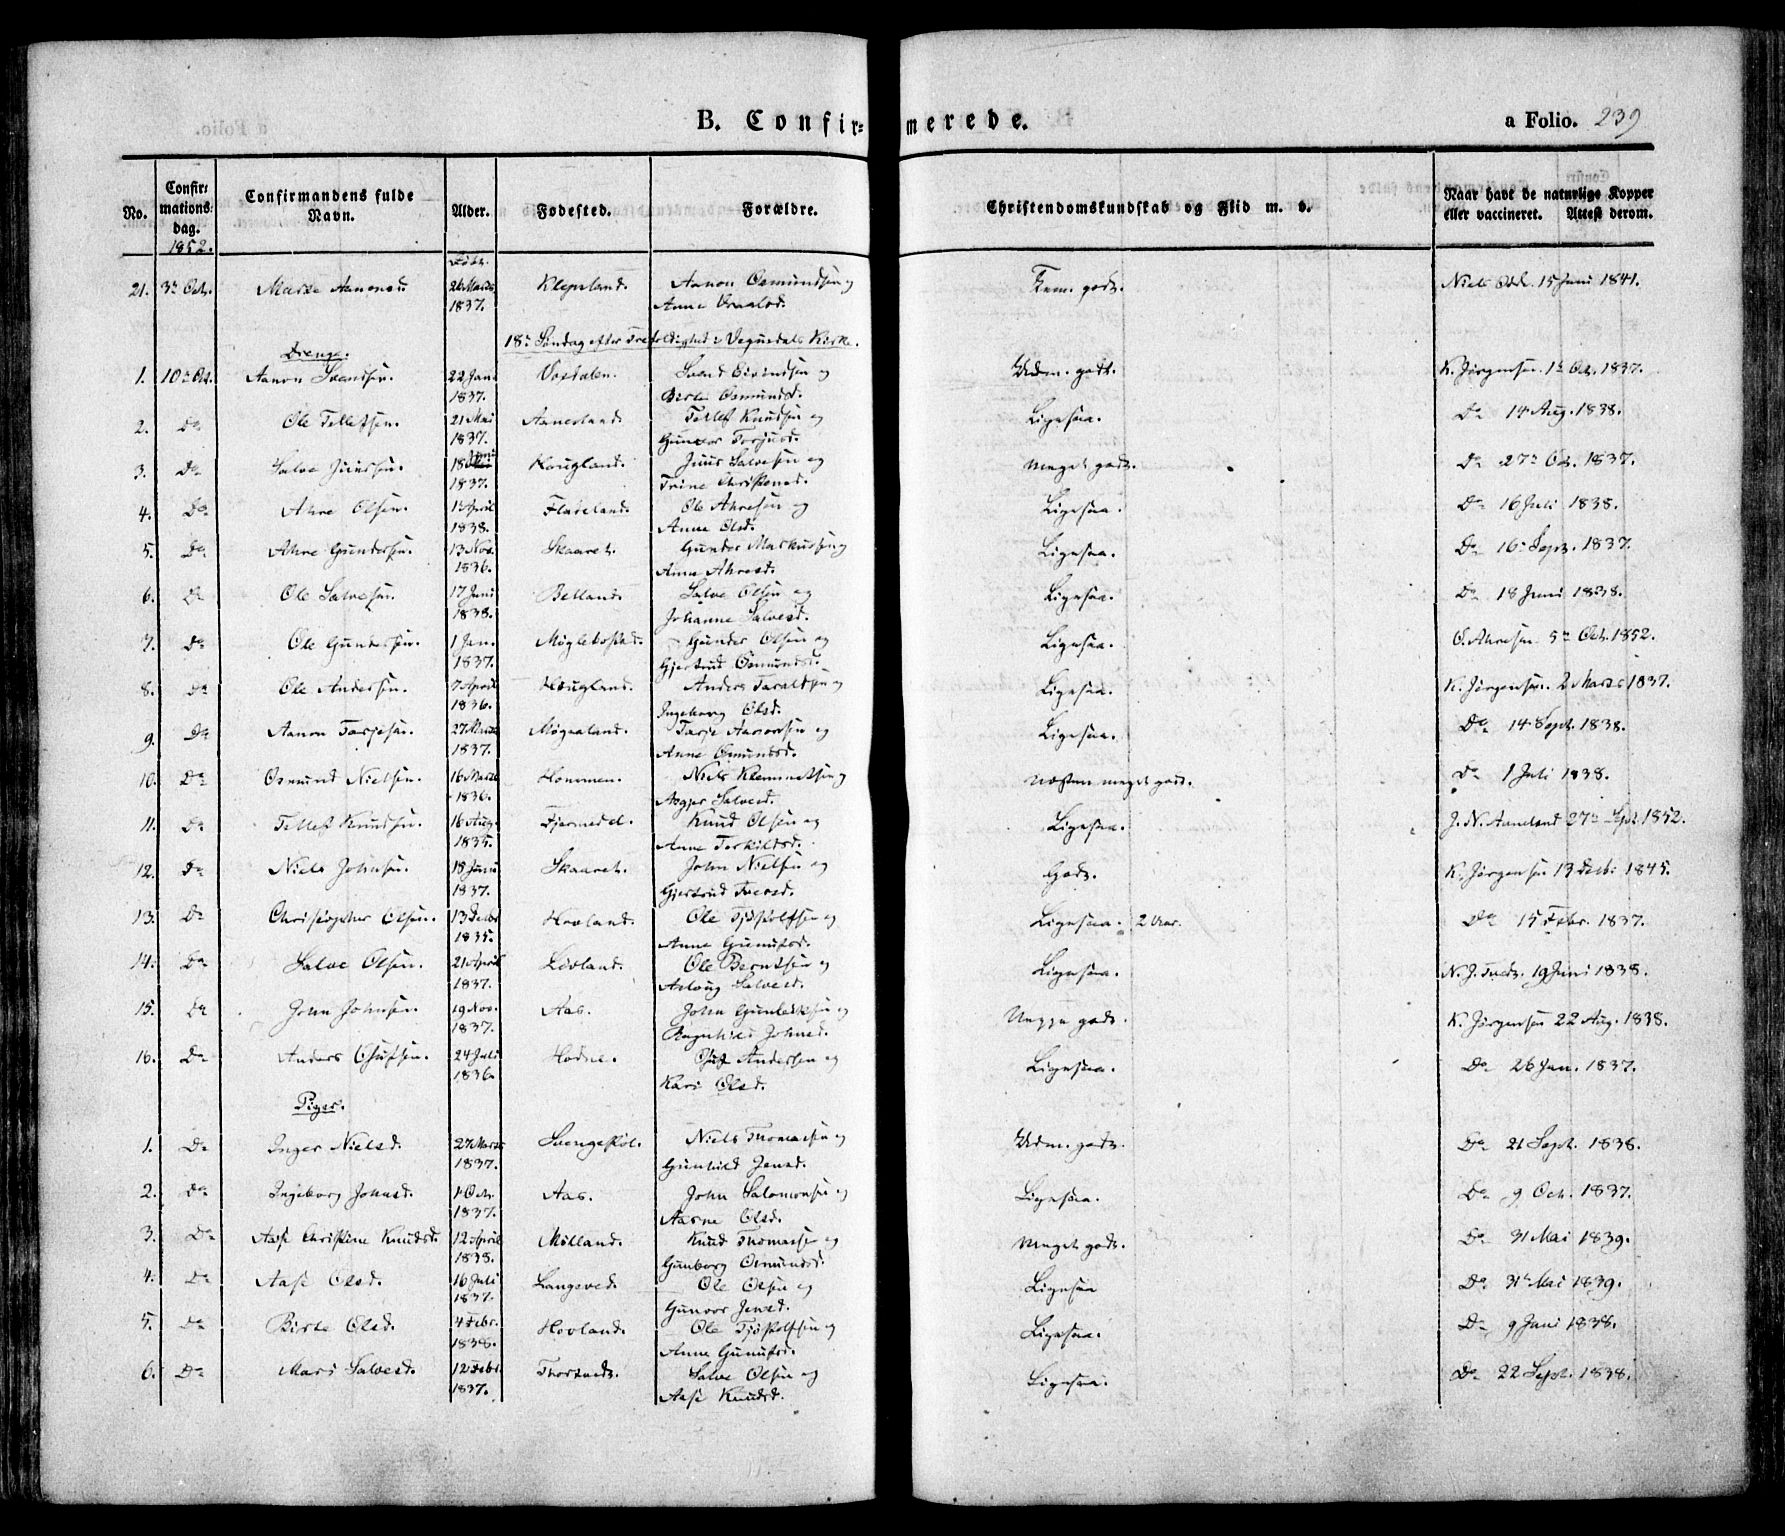 B. Confirmerede. a Folio. 239
No. Confirmationsdag. 1852. Confirmandens fulde Navn. Alder. Fødested. Forældre. Christendomskundskab og Flid m. v. Naar havt de naturlige Kopper eller vaccineret. Attest derom.
Født.
21. 3die Oct. 26 Marts Klepsland. Aanon Osmundsen og Tem. godt. Niels 15 Juni 1841.
1837. Anne
18de Søndag efter Trefoldighed i Vegusdals Kirke.
Drenge.
1. 10de Oct. Aanon Svendsen. 22 Janr Vosdalen. Svend Eivindsen og Udm. godt. K. Jørgensen 1ste Oct. 1837.
1837. Birte Osmundsd.
2. Do Ole Tellefsen. 21 Mai Aanesland. Tellef Knudsen og Ligesaa. Do 14 Aug. 1838.
1837. Gunvor Torjusd.
3. Do Salve Juulsen. 18 Juni Hougland. Juul Salvesen og Meget godt. Do 27de Oct. 1837.
1837. Trine Christensd.
4. Do Ahre Olsen. 1ste April Flateland. Ole Ahresen og Ligesaa. Do 16 Juli 1838.
1838. Anne Olsd.
5. Do Ahre Gundersen. 13 Nov. Skaaret. Gunder Markussen og Ligesaa. Do 16de Sept. 1837.
1836. Anne Ahresd.
6. Do Ole Salvesen. 17 Juni Belland. Salve Olsen og Ligesaa. Do 18 Juni 1838.
1838. Johanne Salvesd.
7. Do Ole Gundersen. 1 Jan. Møglebostad. Gunder Olsen og Ligesaa. O. Ahresen 5te Oct. 1852.
1837. Gjertrud Osmundsd.
8. Do Ole Andersen. 7 April Hougland. Anders Taraldsen og Ligesaa. K. Jørgensen. 2 Marts 1837.
1836. Ingeborg Olsd.
9. Do Aanon Tarjesen. 27 Marts Møgaaland. Tarje Aanonsen og Ligesaa. Do 14 Sept. 1838.
1837. Anne Osmundsd.
10. Do Osmund Nielsen. 16 Marts Hommen. Niels Klemmetsen og Næsten meget godt. Do 1 Juli 1838.
1836. Asgjer Salvesd.
11. Do Tellef Knudsen. 16 Aug. Fjermedal. Knud Olsen og Ligesaa. J. N. Aaneland 27de Sept. 1852.
1835. Anne Terkildsd.
12. Do Niels Johnsen. 18 Juni Skaaret. John Nielsen og Godt. K. Jørgensen 13 Decbr 1845.
1837. Gjertrud Tvesd.
13. Do Christopher Olsen. 13 Decbr Hovland. Ole Tjøstolfsen og Ligesaa. 2 Aar. Do 15 Febr. 1837.
1835. Anne Gunulfsd.
14. Do Salve Olsen. 21 April Løvland. Ole Berntsen og Ligesaa. N. J. Tvedt. 19 Juni 1838.
1837. Aslaug Salvesd.
15. Do John Johnsen. 19 Nov. Aas. John Gunleiksen og godt. K. Jørgensen 22 Aug. 1838.
1837. Ragnhild Johnsd.
16. Do Anders Gjulsen. 24 Juli Hodne. Andersen og Ligesaa. Do 26 Jan. 1837.
1836. Kari Olsd.
Piger.
1. Do Inger Nielsd. 27 Marts Svengeskjøl. Niels Thomassen og Udm. godt. Do 21 Sept. 1838.
1837. Gunhild Jensd.
2. Do Ingeborg Johnsd. 1 Oct. Aas. John Salomonsen og Ligesaa. Do 9 Oct. 1837.
1837. Aasne Olsd.
3. Do Aase Christine Knudsd. 12 April Mølland. Knud Thomassen og Meget godt. Do 31 Mai 1839.
1838. Gunborg Osmundsd.
4. Do Aase Olsd. 16 Juli Langeved. Ole Olsen og Ligesaa Do 31te Mai 1839.
1837. Gunvor Jensd.
5. Do Birte Olsd. 4 Febr. Hovland. Ole Tjøstolfsen og Ligesaa. Do 9 Juni 1838.
1838. Anne Gunulfsd.
6. Do Mari Salvesd. 12 Febr. Thortvedt. Salve Olsen og Ligesaa. Do 22 Sept. 1838.
1837. Aase Knudsd.